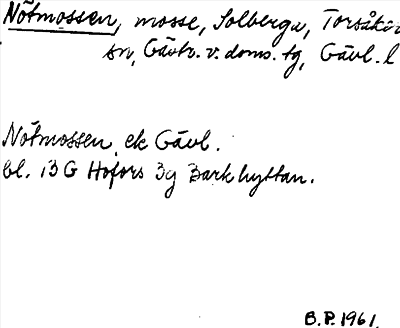 Nötmossen, mosse, Solberga, Torsåkers
sn, Gävtr. v. doms. tg, Gävl. l
Nötmossen ek Gävl.
bl. 13 G Hofors 3g Barkhyttan.
B.P. 1961.